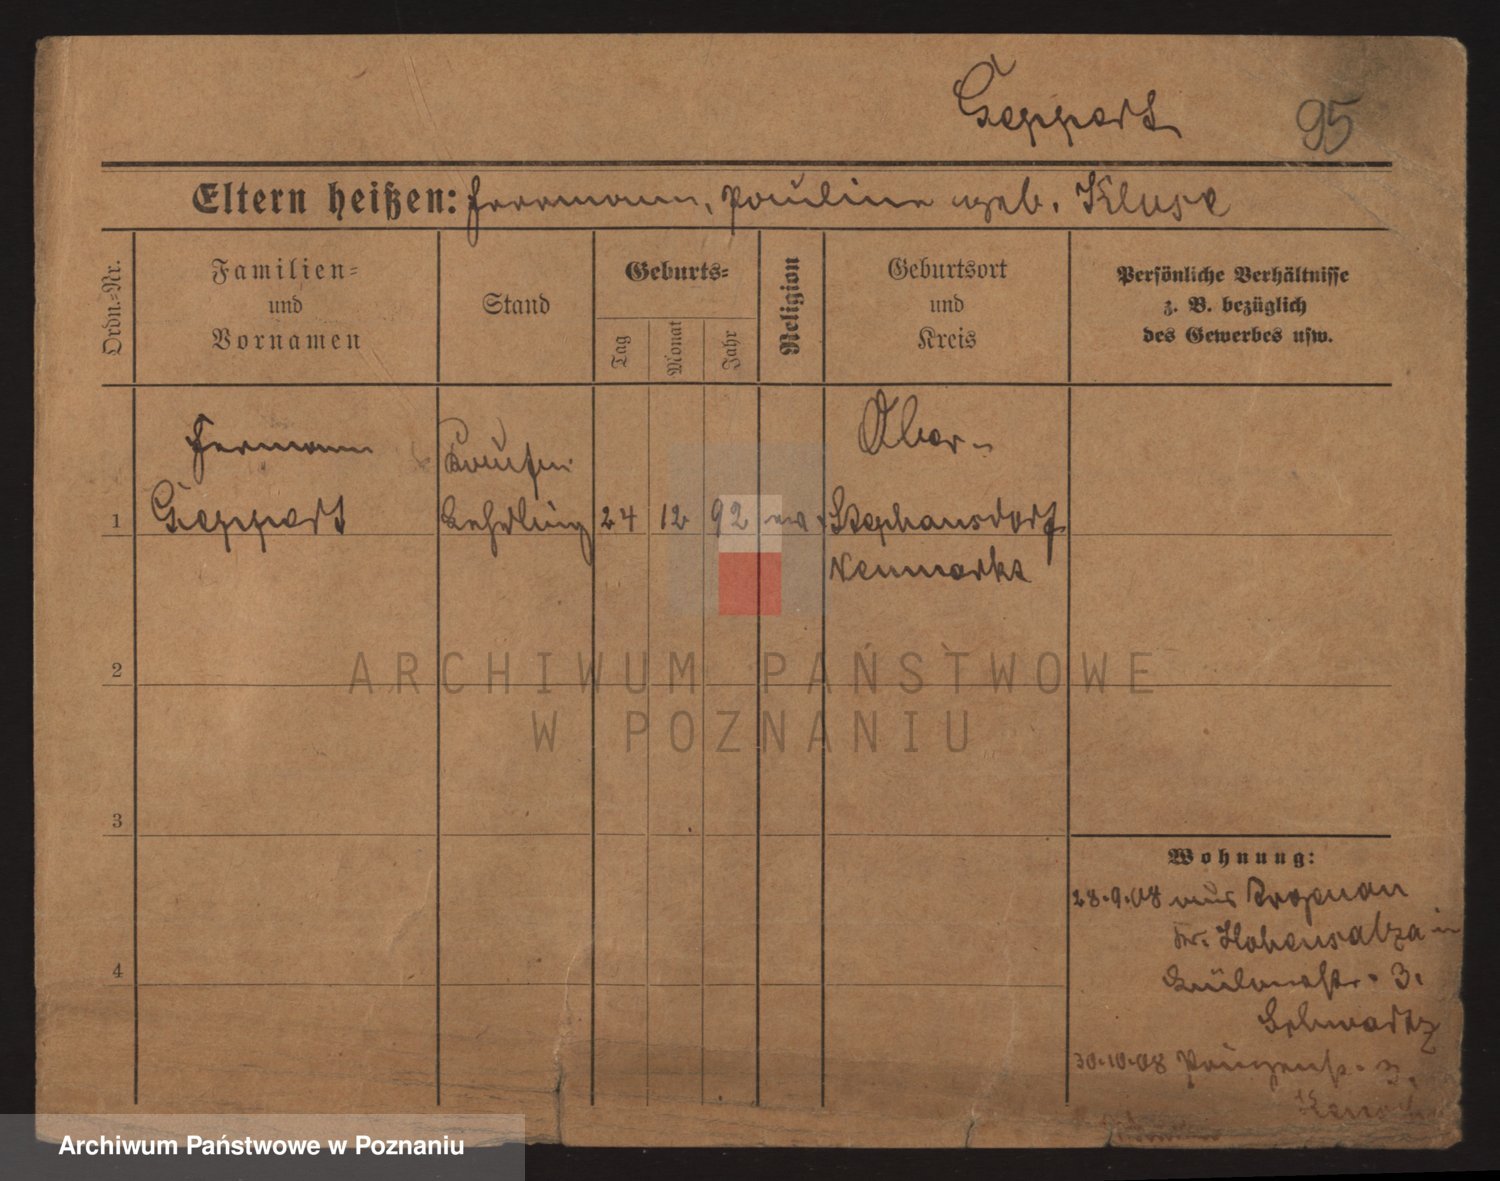 Geppert 95
Eltern heißen: Herrmann, Pauline geb. Kluse
Ordn.=Nr.
Familien=
und
Vornamen
Stand
Geburts=
Tag
Monat
Jahr
Religion
Geburtsort
und
Kreis
Persönliche Verhältnisse
z. B. bezüglich
des Gewerbes usw.
Hermann
Ober-
1 Geppert Lehrling 24 12 92 ev. Stephansdorf
Neumarkt
2
ARCHIWUM PAŃSTWOWE
W POZNANIU
3
Wohnung:
28.9.08 aus
Kr. Hohensalza in
4
3.
Schwartz
30.10.08 3.
Archiwum Państwowe w Poznaniu